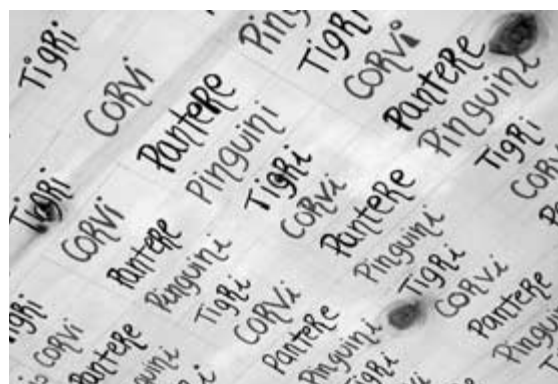 Pinguini
Tigri
Corvi
Pantere
Pinguini
Tigri
Corvi
Tigri
Corvi
Pantere
Pinguini
Tigri
Corvi
Pantere
Pinguini
Tigri
Corvi
Pantere
Pinguini
Tigri
Corvi
Pantere
Pinguini
Tigri
Corvi
Pantere
Pinguini
Tigri
Corvi
Tigri
Corvi
Pantere